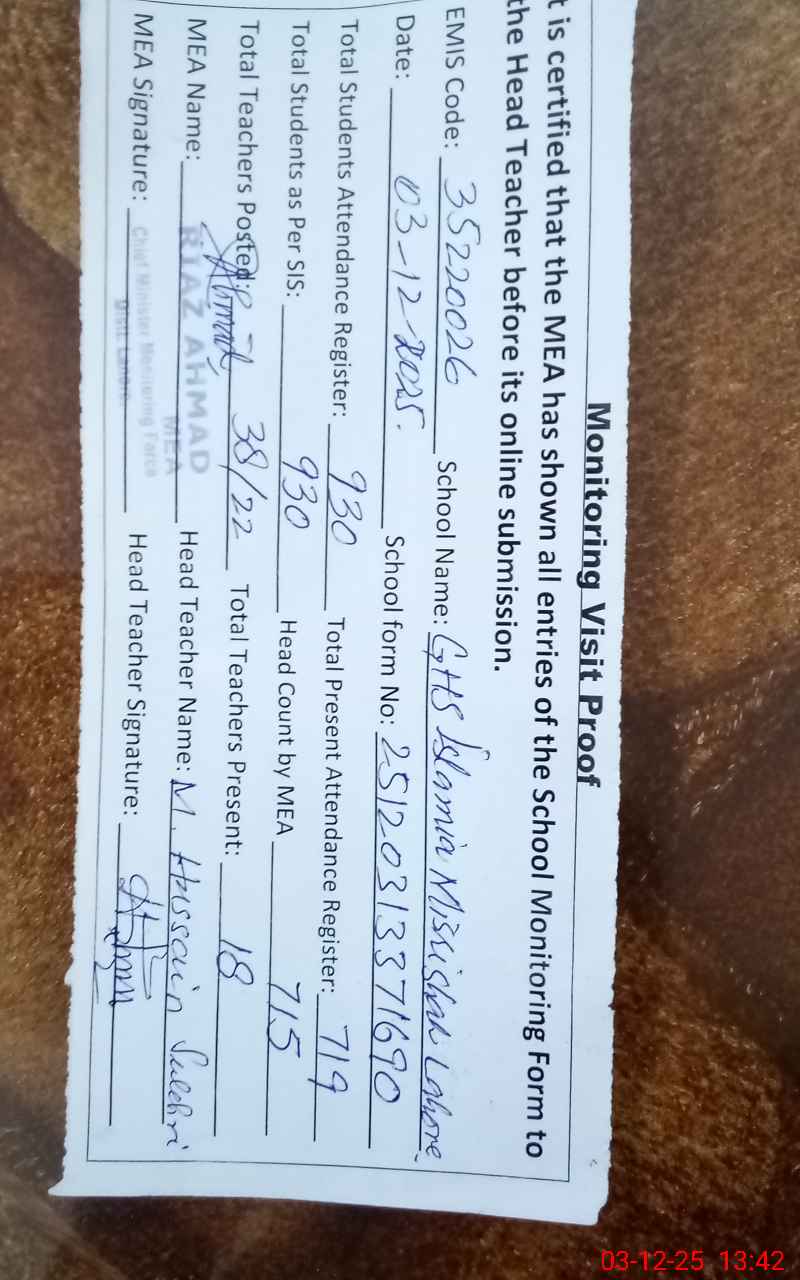 Monitoring Visit Proof
t is certified that the MEA has shown all entries of the School Monitoring Form to
the Head Teacher before its online submission.
EMIS Code: 35220026 School Name: GHS Islamia Misrishah Lahore.
Date: 03-12-2025. School form No: 25120313371690
Total Students Attendance Register: 930 Total Present Attendance Register: 719
Total Students as Per SIS: 930 Head Count by MEA 715
Total Teachers Posted: 38/22 Total Teachers Present: 18
MEA Name: RIAZ AHMAD Head Teacher Name: M. Hussain Sulehri
MEA
MEA Signature: Chief Minister Monitoring Force Head Teacher Signature:
Distt: Lahore.
03-12-25 13:42